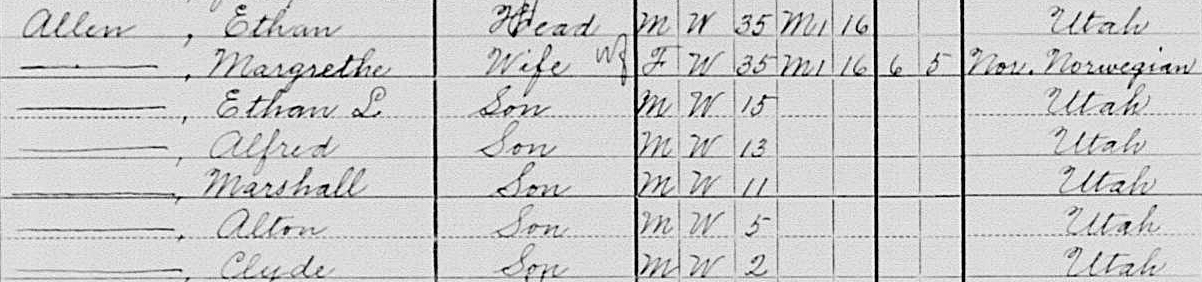 Allen, Ethan Head M W 35 M1 16 Utah
——, Margrethe Wife Wf F W 35 M1 16 6 5 Nor. Norwegian
——, Ethan L Son M W 15 Utah
——, Alfred Son M W 13 Utah
——, Marshall Son M W 11 Utah
——, Alton Son M W 5 Utah
——, Clyde Son M W 2 Utah